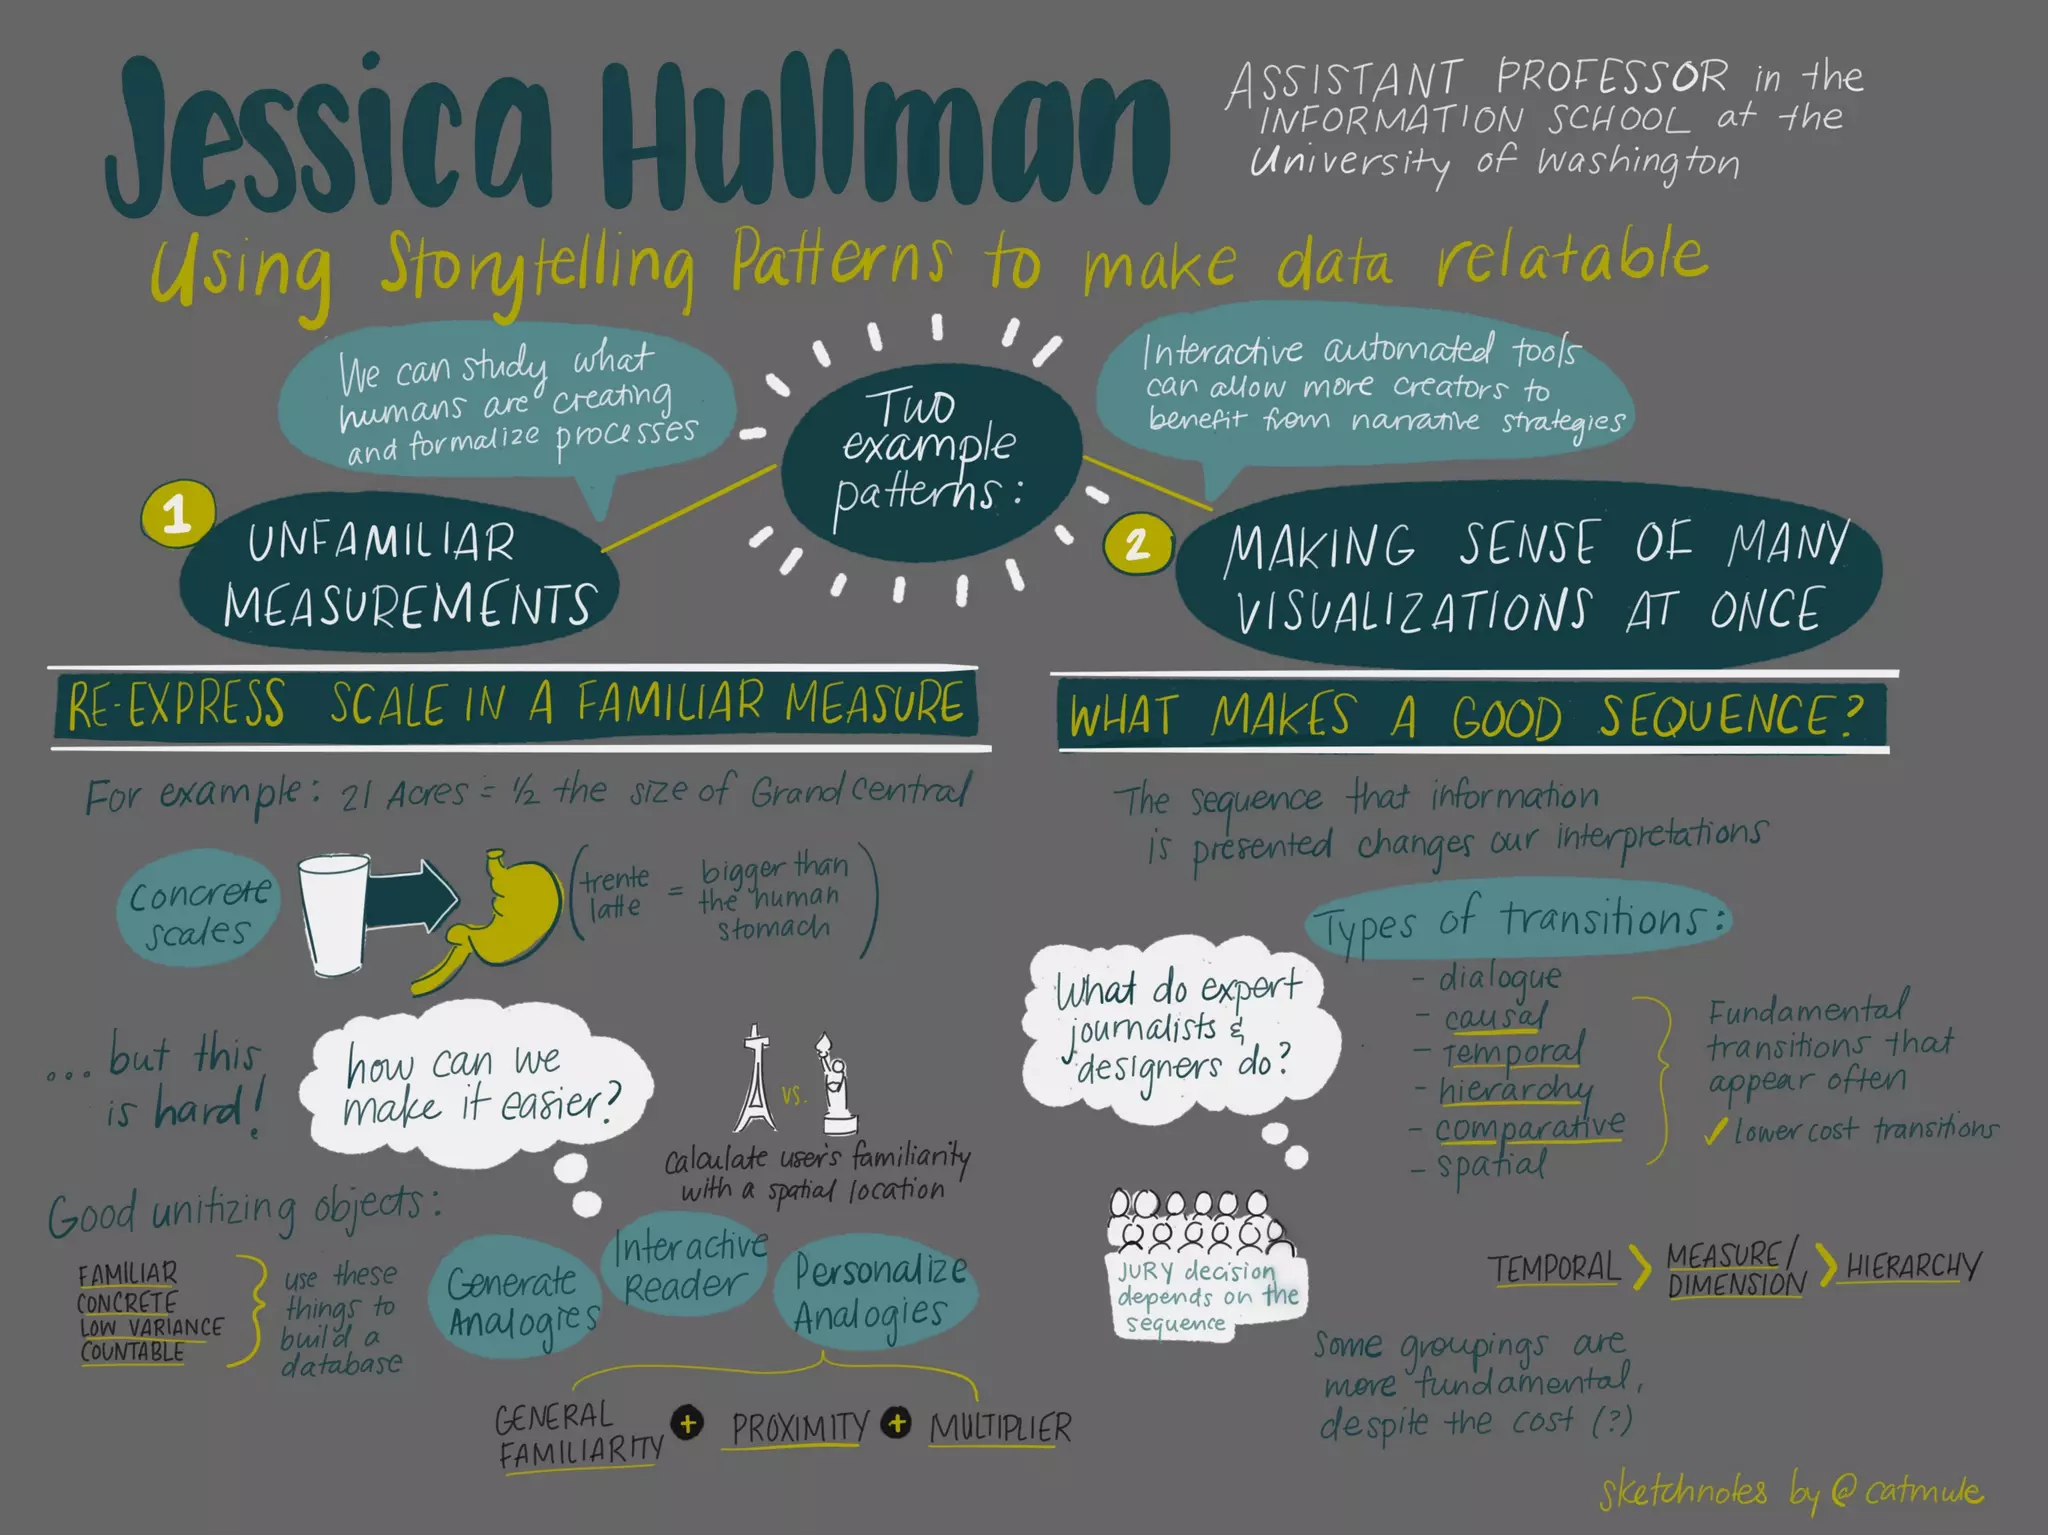 Jessica Hullman
ASSISTANT PROFESSOR in the
INFORMATION SCHOOL at the
University of Washington
Using Storytelling Patterns to make data relatable
We can study what
humans are creating
and formalize processes
Two
example
patterns:
Interactive automated tools
can allow more creators to
benefit from narrative strategies
1
UNFAMILIAR
MEASUREMENTS
2
MAKING SENSE OF MANY
VISUALIZATIONS AT ONCE
RE-EXPRESS SCALE IN A FAMILIAR MEASURE
For example: 21 Acres = 1/2 the size of Grand central
concrete
scales
(trente
latte
=
bigger than
the human
stomach)
...but this
is hard!
how can we
make it easier?
vs.
calculate user's familiarity
with a spatial location
Good unitizing objects:
FAMILIAR
CONCRETE
LOW VARIANCE
COUNTABLE
use these
things to
build a
database
Generate
Analogies
Interactive
Reader
Personalize
Analogies
GENERAL
FAMILIARITY
+
PROXIMITY
+
MULTIPLIER
WHAT MAKES A GOOD SEQUENCE?
The sequence that information
is presented changes our interpretations
Types of transitions:
- dialogue
- causal
- temporal
- hierarchy
- comparative
- spatial
Fundamental
transitions that
appear often
✓ lower cost transitions
What do expert
journalists &
designers do?
JURY decision
depends on the
sequence
TEMPORAL > MEASURE/
DIMENSION > HIERARCHY
Some groupings are
more fundamental,
despite the cost (?)
sketchnotes by @catmule